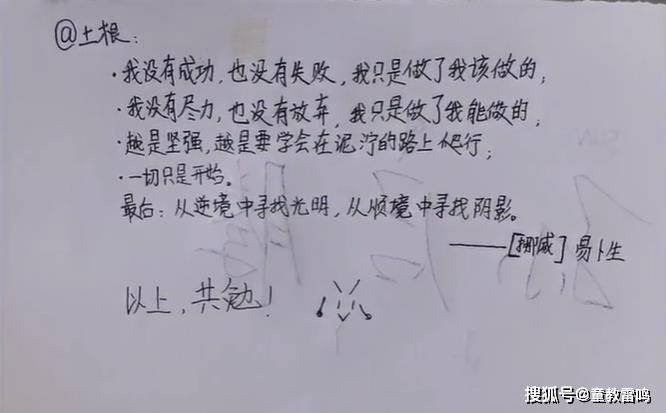 @土根:
·我没有成功,也没有失败,我只是做了我该做的;
·我没有尽力,也没有放弃,我只是做了我能做的;
·越是坚强,越是要学会在泥泞的路上爬行;
·一切只是开始。
最后:从逆境中寻找光明,从顺境中寻找阴影。
——[挪威]易卜生
以上,共勉!
搜狐号@童教雷鸣